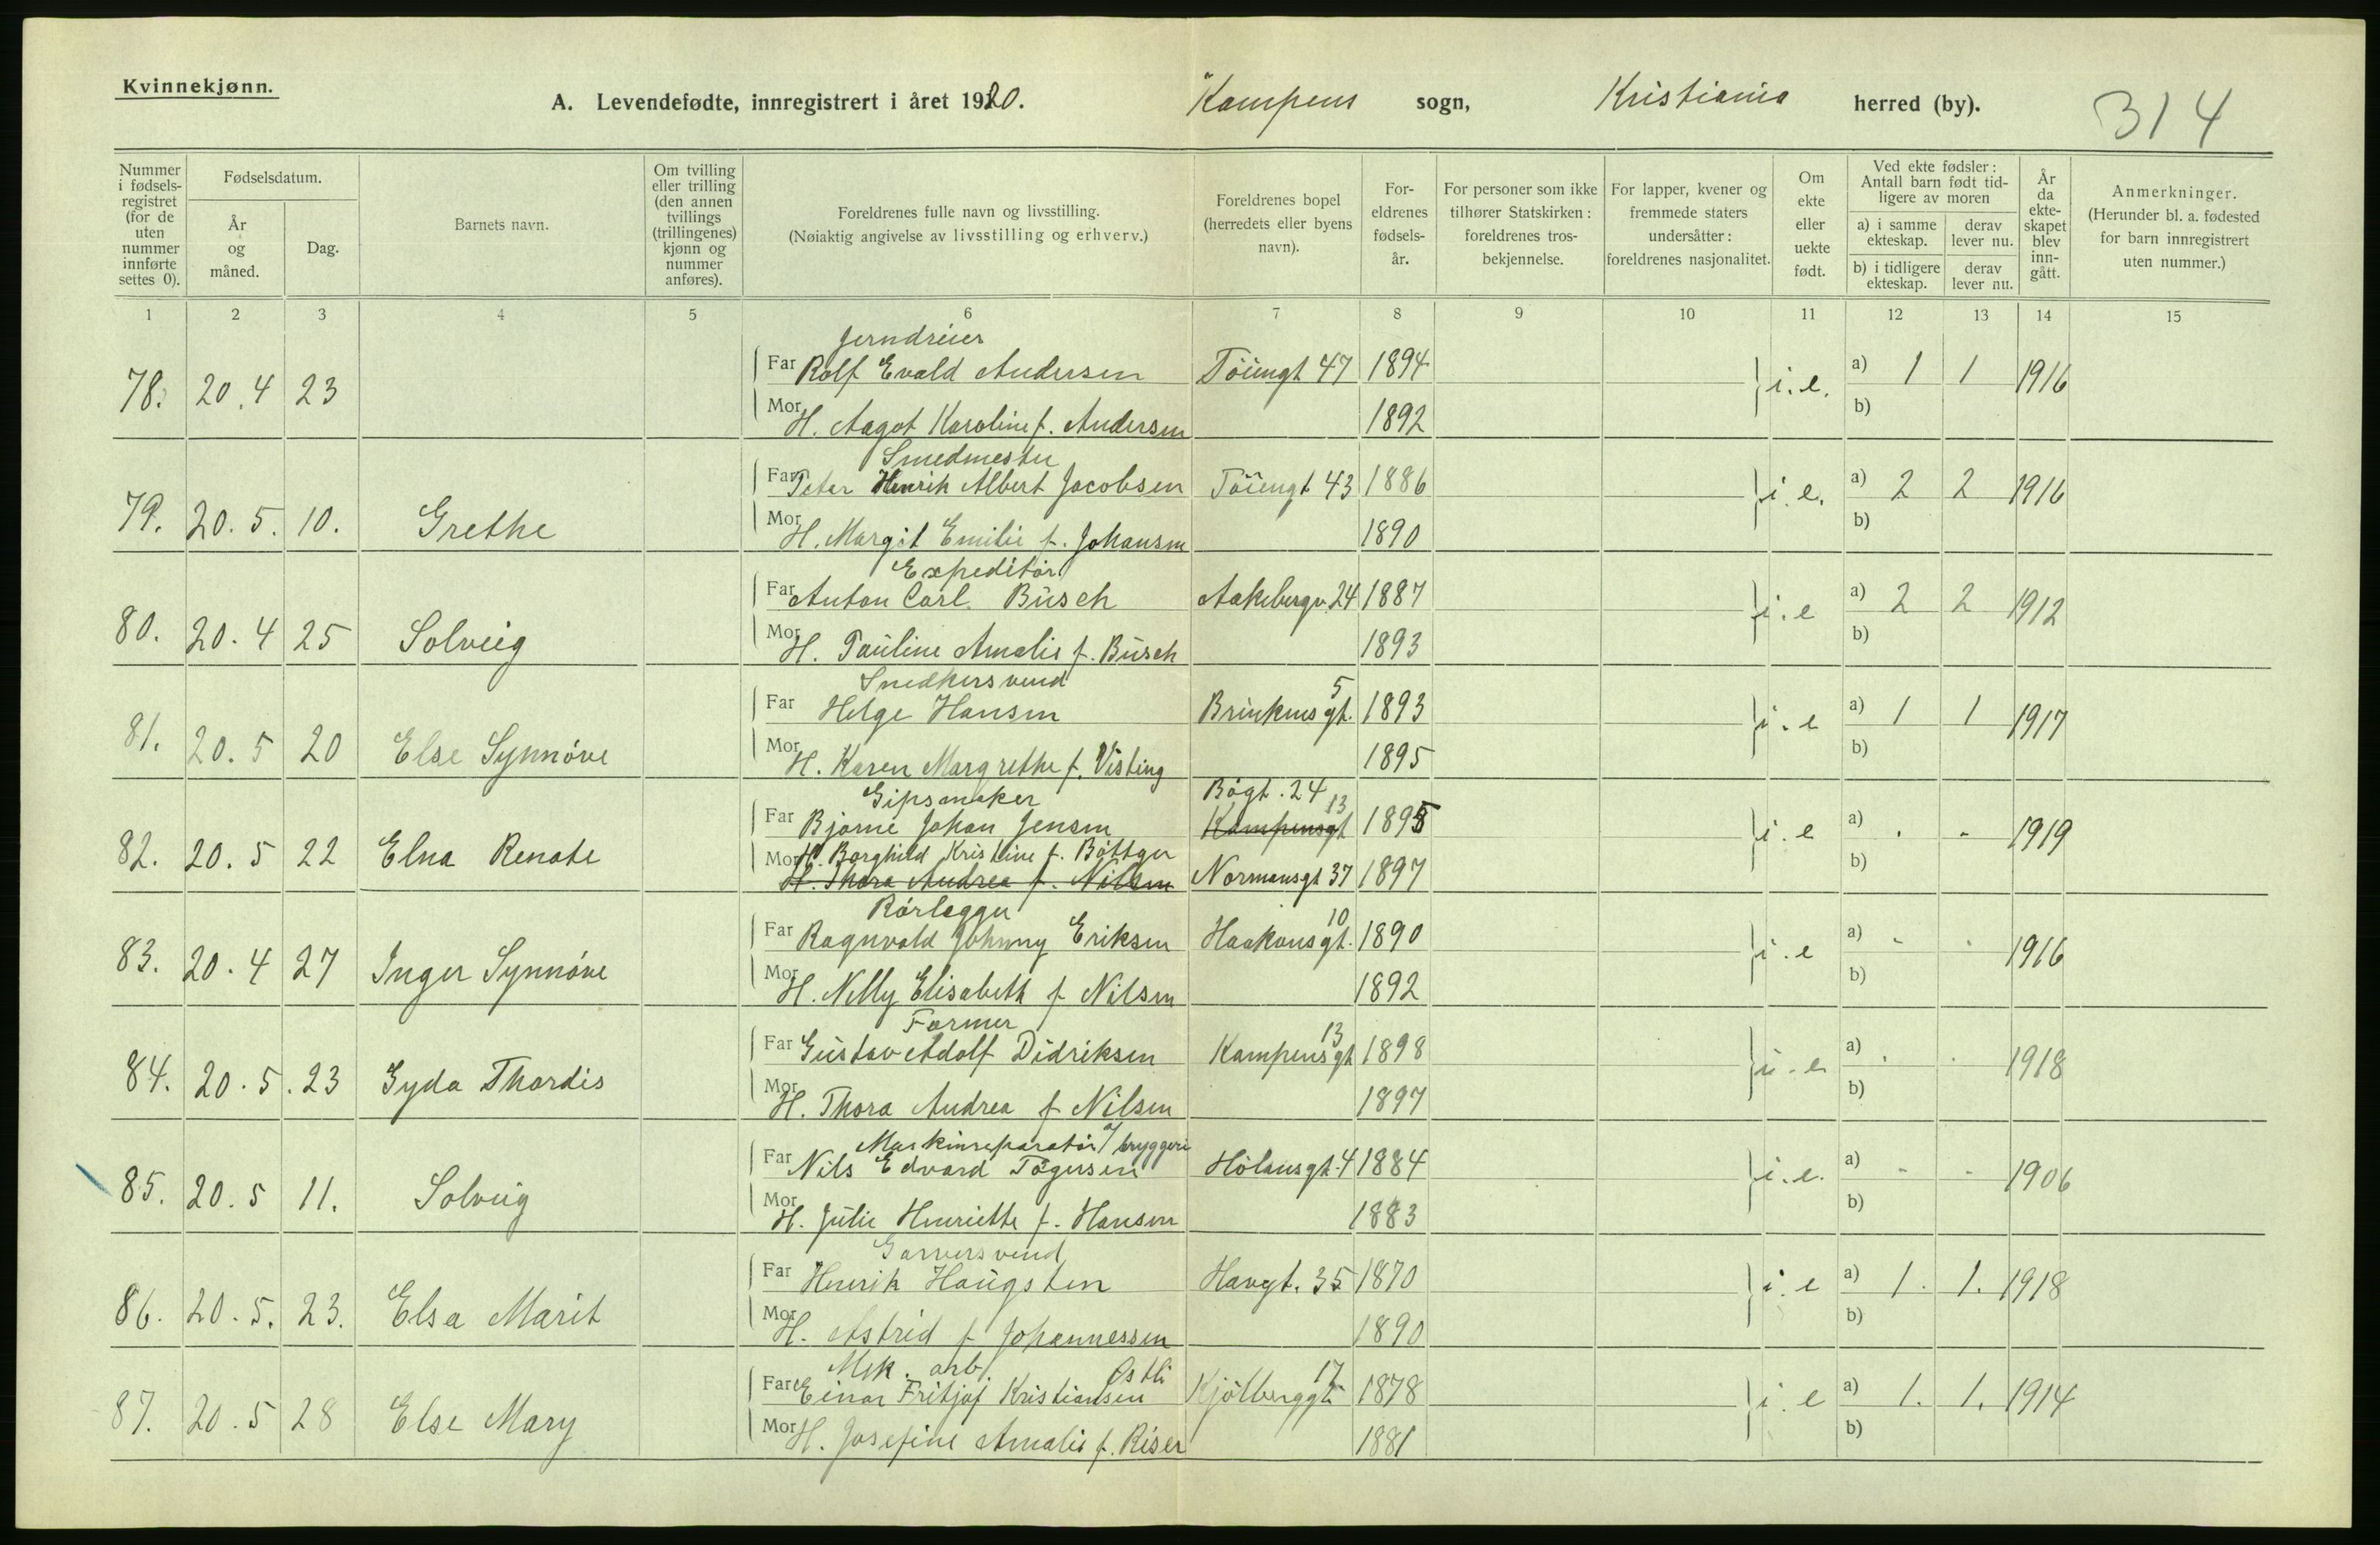 Kvinnekjønn.
A. Levendefødte, innregistrert i året 1920. Kampens sogn, Kristiania herred (by). 314
Nummer i fødsels- registret (for de uten nummer innførte settes 0).
Fødselsdatum.
År og måned.
Dag.
Barnets navn.
Om tvilling eller trilling (den annen tvillings (trillingenes) kjønn og nummer anføres).
Foreldrenes fulle navn og livsstilling.
(Nøiaktig angivelse av livsstilling og erhverv.)
Foreldrenes bopel (herredets eller byens navn).
For- eldrenes fødsels- år.
For personer som ikke tilhører Statskirken: foreldrenes tros- bekjennelse.
For lapper, kvener og fremmede staters undersåtter: foreldrenes nasjonalitet.
Om ekte eller uekte født.
Ved ekte fødsler: Antall barn født tid- ligere av moren
a) i samme ekteskap.
derav lever nu.
b) i tidligere ekteskap.
derav lever nu.
År da ekte- skapet blev inn- gått.
Anmerkninger.
(Herunder bl. a. fødested for barn innregistrert uten nummer.)
1 2 3 4 5 6 7 8 9 10 11 12 13 14 15
Jerndreier
78. 20.4 23 Far Rolf Evald Andersen Töiengt 47 1894 i.e. a) 1 1 1916
Mor H. Aagot Karoline f. Andersen 1892 b)
Smedmester
79. 20.5. 10. Grethe Far Peter Henrik Albert Jacobsen Töiengt 43 1886 i.e. a) 2 2 1916
Mor H. Margit Emilie f. Johansen 1890 b)
Expeditör
80. 20.4 25 Solveig Far Anton Carl Büsch Aakebergv. 24 1887 i.e a) 2 2 1912
Mor H. Pauline Amalie f. Büsch 1893 b)
Snedkersvend
81. 20.5 20 Else Synnöve Far Helge Hansen Brinkens gt. 5 1893 i.e a) 1 1 1917
Mor H. Karen Margrethe f. Visting 1895 b)
Gipsmaker Bögt. 24
82. 20.5 22 Elna Renate Far Bjarne Johan Jensen Kampensgt 13 1895 i.e a) . - 1919
Mor H. Borghild Kristine f. Böttger b)
H. Thora Andrea f. Nilsen Normansgt 37 1897
Rörlegger
83. 20.4 27 Inger Synnöve Far Ragnvald Johnny Eriksen Haakonsgt. 10 1890 i.e a) - - 1916
Mor H. Nelly Elisabeth f Nilsen 1892 b)
Former
84. 20.5. 23 Gyda Thordis Far Gustav Adolf Didriksen Kampensgt 13 1898 i.e a) . . 1918
Mor H. Thora Andrea f Nilsen 1897 b)
Maskinreparatör a/ bryggeri
85. 20.5 11. Solveig Far Nils Edvard Tögersen Hölansgt. 4 1884 i.e. a) - - 1906
Mor H. Julie Henriette f. Hansen 1883 b)
Garversvend
86. 20.5. 23. Elsa Marit Far Henrik Haugsten Havgt. 35 1870 i.e a) 1. 1. 1918
Mor H. Astrid f Johannessen 1890 b)
Mek. arb. Østli
87. 20.5 28 Else Mary Far Einar Fritjof Kristiansen Kjölberggt 17 1878 i.e a) 1. 1. 1914
Mor H. Josefine Amalie f. Riser 1881 b)